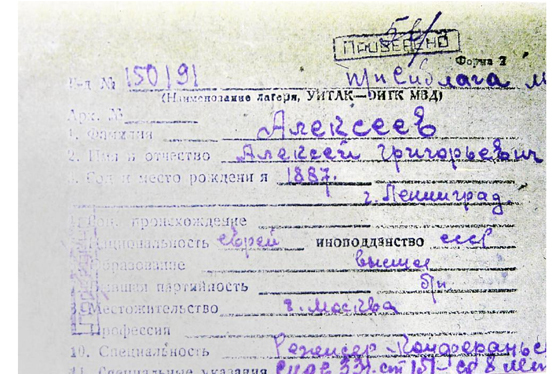 ПРОВЕРЕНО
Форма 2
л-д № 150191
Сиблага М
(Наименование лагеря, УИТЛК—ОИТК МВД)
Арх. №
1. Фамилия Алексеев
2. Имя и отчество Алексей Григорьевич
Год и место рождения 1887.
г. Ленинград
происхождение
Национальность еврей иноподданство ссср
Образование высшее
партийность б/п
Местожительство г. Москва
Профессия
10. Специальность Режиссер Конферансье
11. Специальные указания